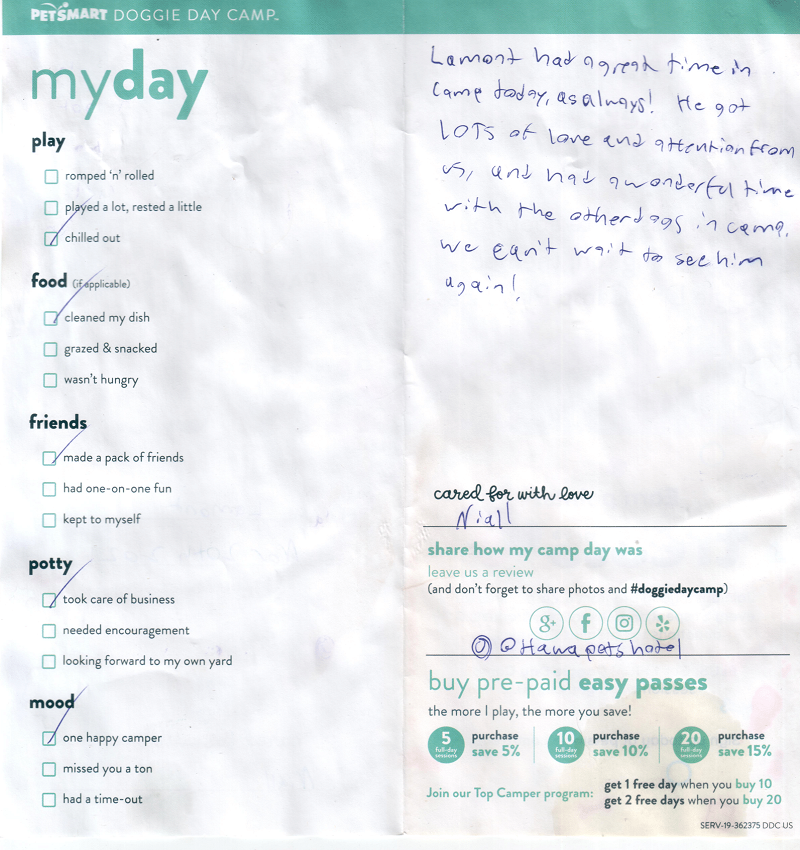 PETSMART DOGGIE DAY CAMP™
myday
play
romped 'n' rolled
played a lot, rested a little
chilled out
food (if applicable)
cleaned my dish
grazed & snacked
wasn't hungry
friends
made a pack of friends
had one-on-one fun
kept to myself
potty
took care of business
needed encouragement
looking forward to my own yard
mood
one happy camper
missed you a ton
had a time-out
Lamont had a great time in
camp today, as always! He got
LOTS of love and attention from
us, and had a wonderful time
with the other dogs in camp.
We can't wait to see him
again!
cared for with love
Niall
share how my camp day was
leave us a review
(and don't forget to share photos and #doggiedaycamp)
g+ f
@ottawapetshotel
buy pre-paid easy passes
the more I play, the more you save!
5 full-day sessions purchase save 5%
10 full-day sessions purchase save 10%
20 full-day sessions purchase save 15%
Join our Top Camper program: get 1 free day when you buy 10
get 2 free days when you buy 20
SERV-19-362375 DDC US